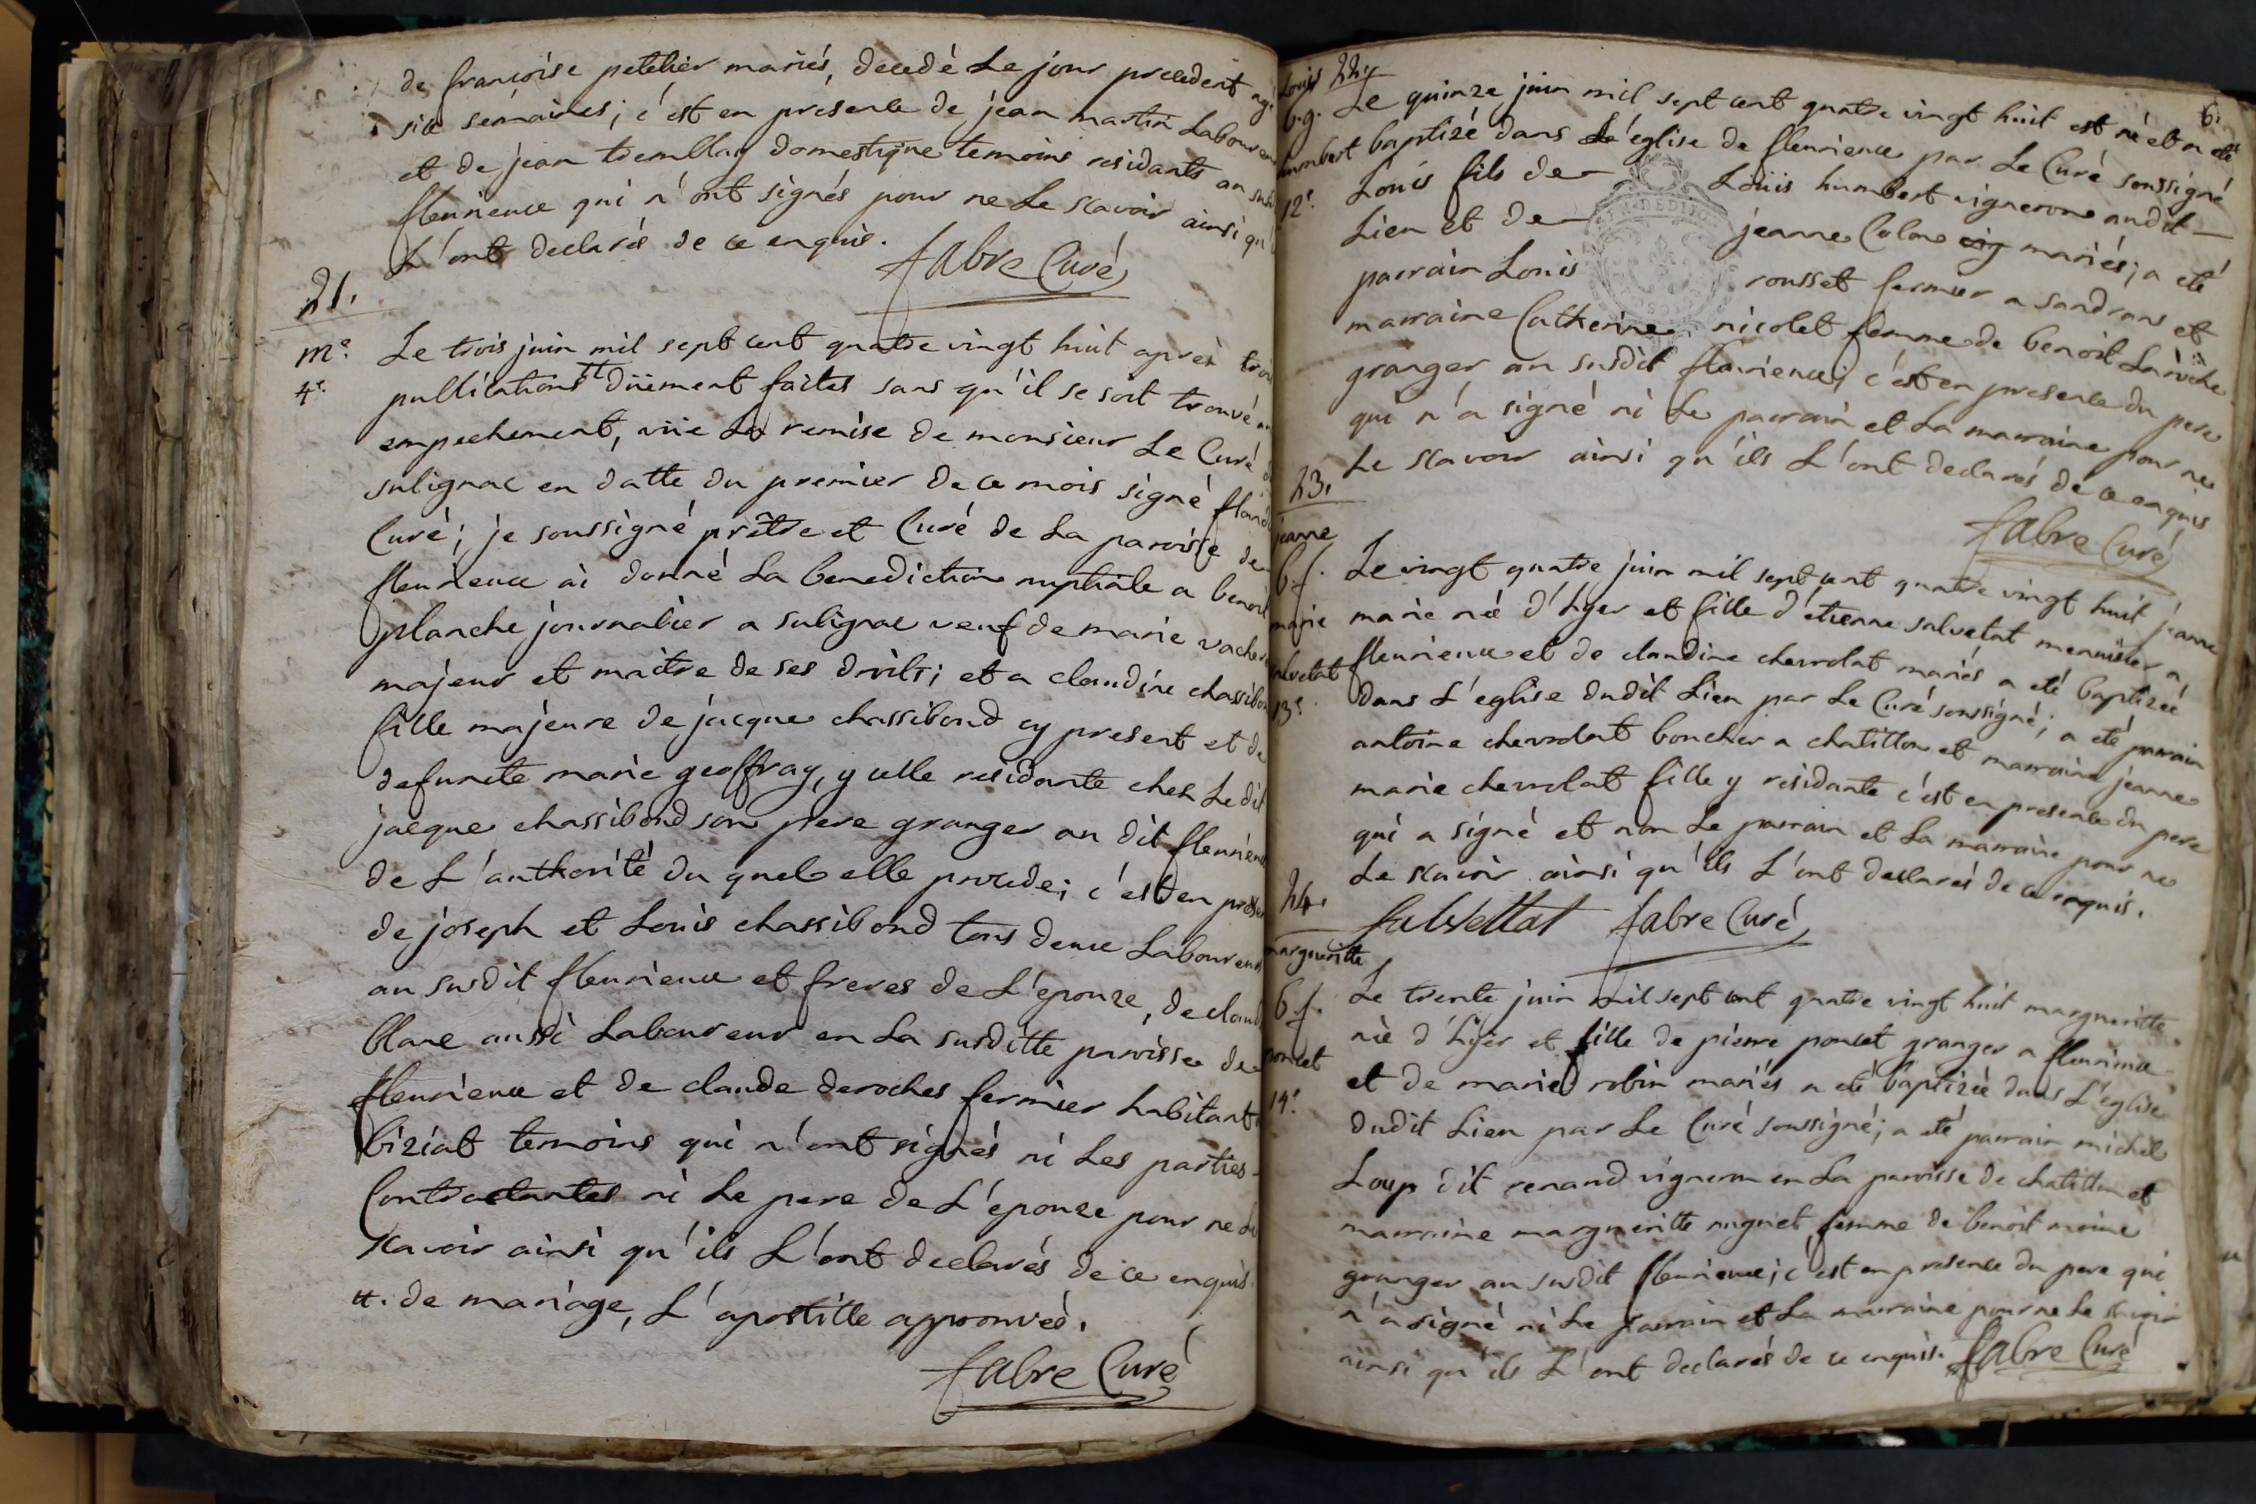 de françoise petelier mariés, decedé Le jour precedent agé
six semaines; c'est en présence de jean martin Laboureur
et de jean tremblay domestique temoins residants au susdit
fleurieux qui n'ont signés pour ne Le scavoir ainsi qu'
L'ont declarés de ce enquis.
fabre Curé
21.
me.
4e.
Le trois juin mil sept cent quatre vingt huit après trois
publications tt düement faites sans qu'il se soit trouvé
empechement, vüe La remise de monsieur Le Curé
sulignac en datte du premier de ce mois signé
Curé; je soussigné prêtre et Curé de La paroisse de
fleurieux ai donné La benediction nuptiale a benoit
planche journalier a sulignac veuf de marie
majeur et maître de ses droits; et a claudine chassibond
fille majeure de jacque chassibond cy present et de
defuncte marie geoffray, y celle residante chez Le dit
jacque chassibond son pere granger au dit fleurieux
de L'authorité du quel elle procede; c'est en
de joseph et Louis chassibond tous deux Laboureurs
au susdit fleurieux et freres de L'epouze, de claude
blanc aussi Laboureur en La susditte paroisse de
fleurieux et de claude deroches fermier habitant
biziat temoins qui n'ont signés ni Les parties
Contractantes ni Le pere de L'epouze pour ne Le
scavoir ainsi qu'ils L'ont declarés de ce enquis.
tt. de mariage, L'apostille approuvée.
fabre Curé
6.
Louis
22.
b.g.
humbert
12e.
Le quinze juin mil sept cent quatre vingt huit est né et a eté
baptizé dans L'église de fleurieux par Le Curé soussigné
Louis fils de Loüis humbert vigneron audit
Lieu et de jeanne Colon mariés; a eté
parrain Louis rousset fermier a sandrans et
marraine Catherine nicolet femme de benoit Laroche
granger au susdit fleurieux; c'est en presence du pere
qui n'a signé ni Le parrain et La marraine pour ne
Le scavoir ainsi qu'ils L'ont declarés de ce enquis
fabre Curé
23.
jeanne
b.f.
marie
salvetat
13e.
Le vingt quatre juin mil sept cent quatre vingt huit jeanne
marie née d'hyer et fille d'étienne salvetat meunier a
fleurieux et de claudine chevrolat mariés a eté baptizée
dans L'eglise dudit Lieu par Le Curé soussigné; a eté parrain
antoine chevrolat boucher a chatillon et marraine jeanne
marie chevrolat fille y residante c'est en presence du pere
qui a signé et non Le parrain et La marraine pour ne
Le scavoir ainsi qu'ils L'ont declarés de ce enquis.
Salvettat fabre Curé
24.
margueritte
b.f.
poncet
14e.
Le trente juin mil sept cent quatre vingt huit margueritte
née d'hyer et fille de pierre poncet granger a fleurieux
et de marie robin mariés a eté baptizée dans L'église
dudit Lieu par Le Curé soussigné; a eté parrain michel
Loup dit renaud vigneron en La paroisse de chatillon et
marraine margueritte femme de benoit moine
granger au susdit fleurieux; c'est en presence du pere qui
n'a signé ni Le parrain et La marraine pour ne Le scavoir
ainsi qu'ils L'ont declarés de ce enquis. fabre Curé